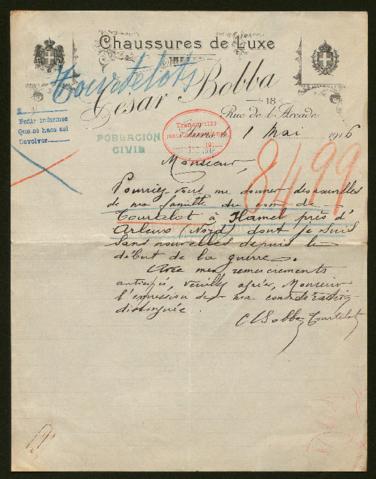 Chaussures de Luxe
Tourtelots
César Bobba
18
Rue de l'Arcade
Pedir informes
Que se hace sel
Devolver
POBLACIÓN
CIVIL
Paris 1 Mai 1916
8499
Monsieur,
Pouvez vous me donner des nouvelles
de ma famille du nom de
Tourtelot à Hamel près d'
Arleux (Nord) dont je suis
sans nouvelles depuis le
début de la guerre.
Avec mes remerciements
anticipés, veuillez agréer, Monsieur
l'expression de ma considération
distinguée.
Bobba Tourtelot